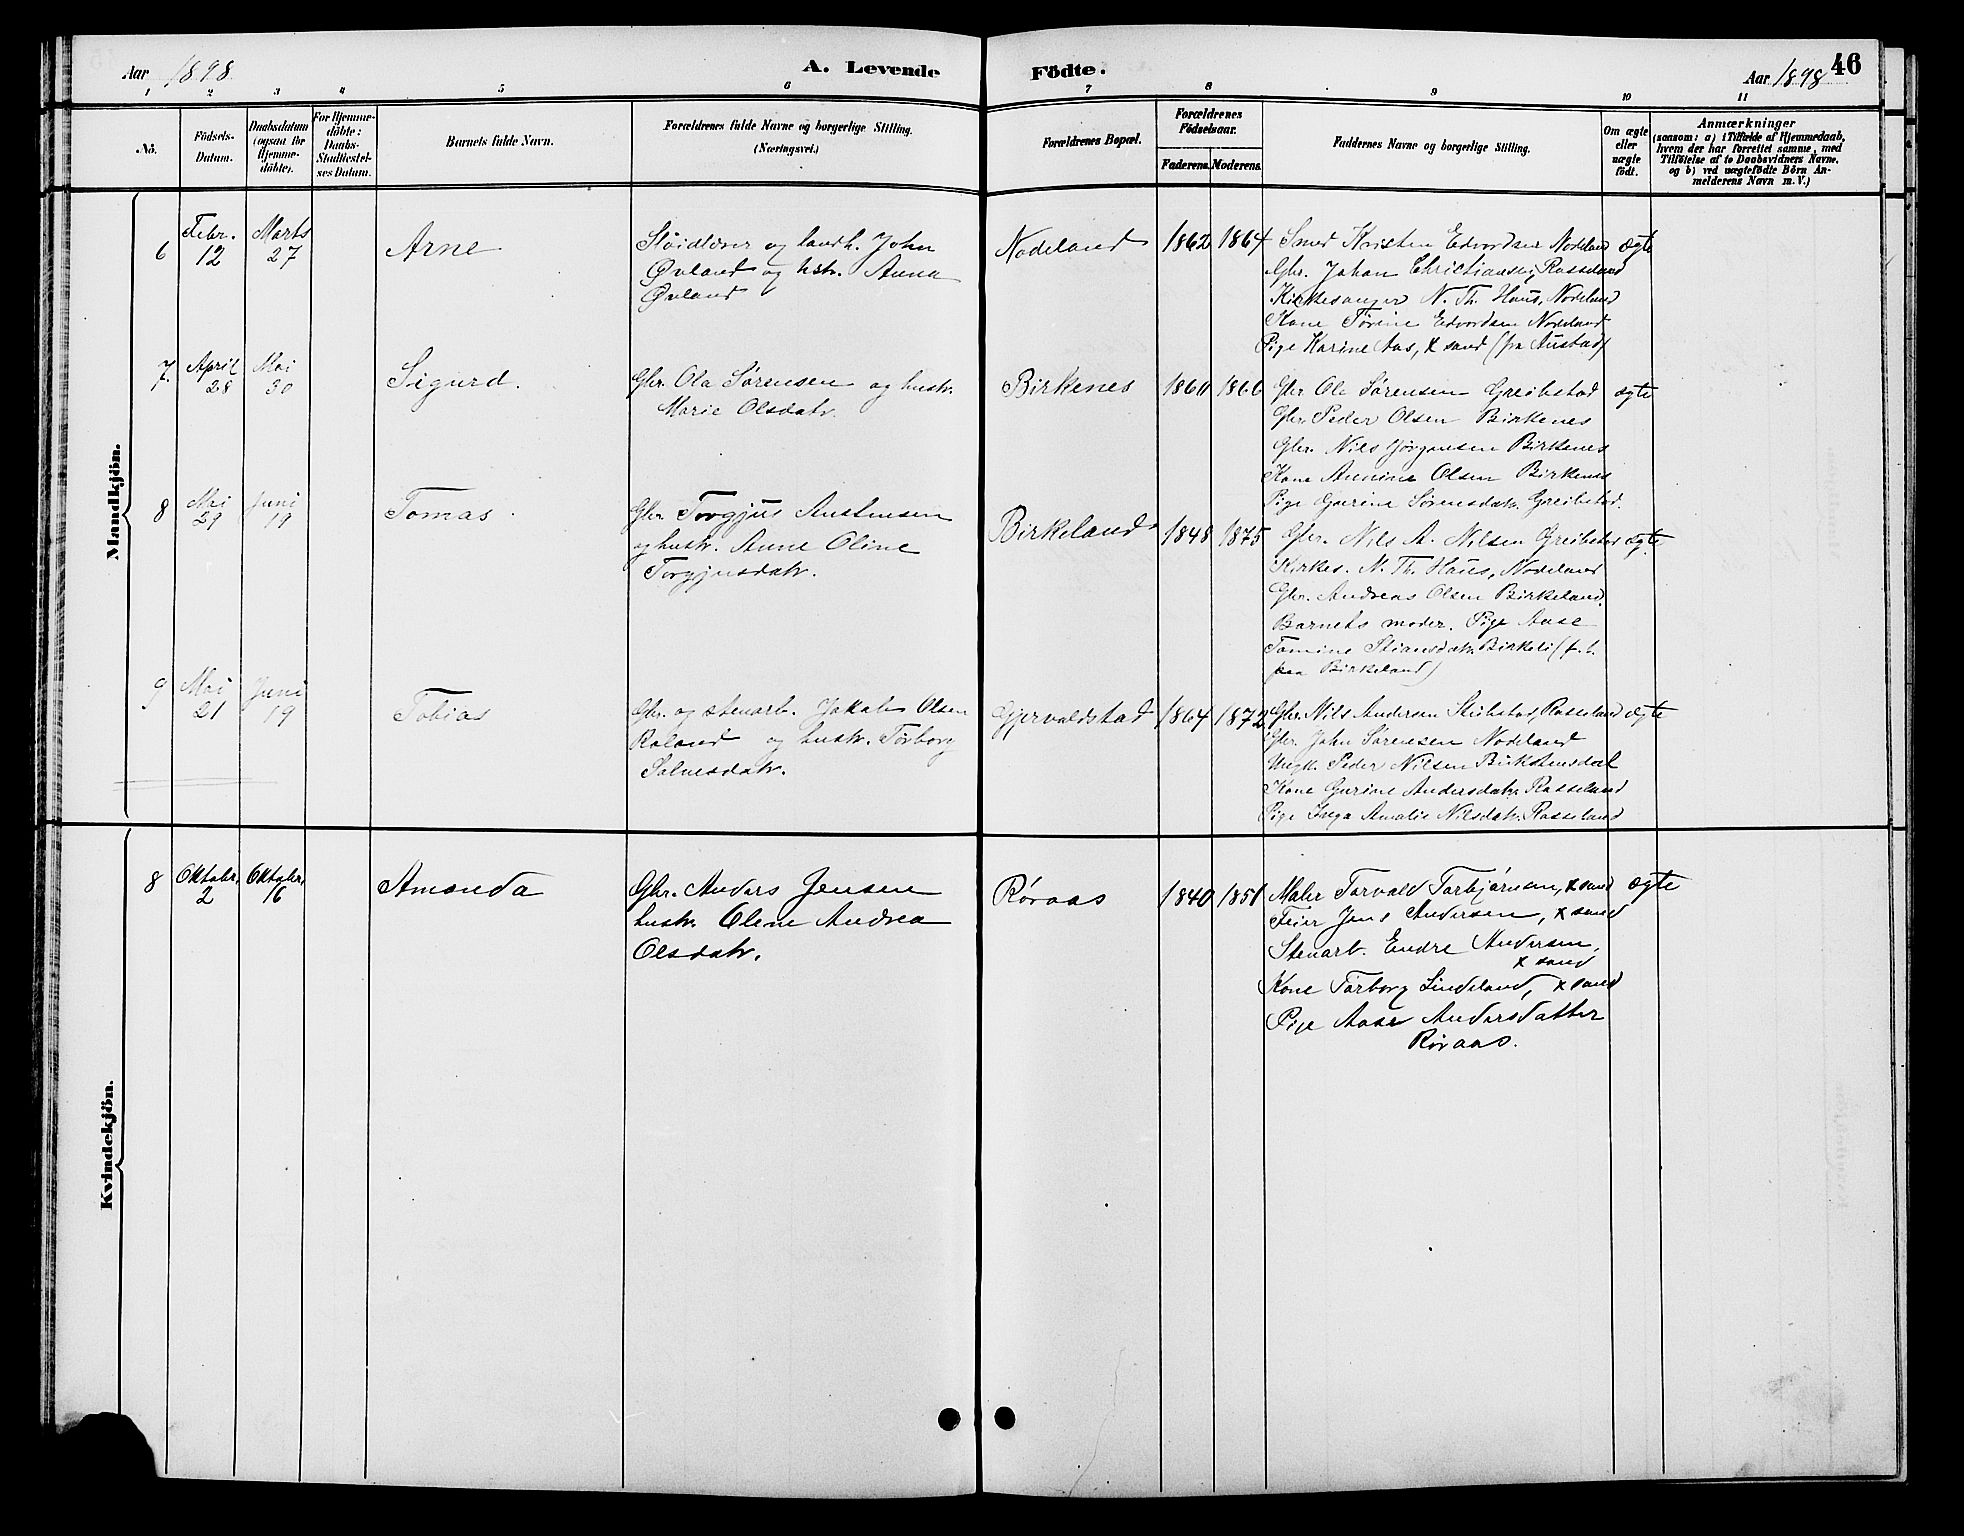 Aar 1898
A. Levende Födte.
Aar 1898
46
1 2 3 4 5 6 7 8 9 10 11
No.
Födsels-
Datum.
Daabsdatum
(ogsaa for
Hjemme-
döbte).
For Hjemme-
döbte:
Daabs-
Stadfæstel-
ses Datum.
Barnets fulde Navn.
Forældrenes fulde Navne og borgerlige Stilling.
(Næringsvei.)
Forældrenes Bopæl.
Forældrenes
Födselsaar.
Faderens. Moderens.
Faddernes Navne og borgerlige Stilling.
Om ægte
eller
uægte
födt.
Anmærkninger
(saasom: a) i Tilfælde af Hjemmedaab,
hvem der har forrettet samme, med
Tilföielse af to Daabsvidners Navne,
og b) ved uægtefödte Börn An-
melderens Navn m. V.)
Mandkjön.
6
Febr.
12
Marts
27
Arne
Sløidlærer og landh. John
Øvland og hstr. Anna
Øvland
Nodeland
1862 1864
Smed Kristen Edvardsen Nodeland
Gbr. Johan Christiansen, Rosseland
Kirkesanger N. Th. Haus, Nodeland
Kone Torine Edvardsen Nodeland
Pige Karine Aas, X sand (fra Austad)
ægte
7.
April
28
Mai
30
Sigurd.
Gbr. Ola Sørensen og hustr.
Marie Olsdatr.
Birkenes
1860 1866
Gbr Ole Sørensen Greibstad
Gbr. Peder Olsen Birkenes
Gbr. Nils Jørgensen Birkenes
Kone Annine Olsen Birkenes
Pige Gurine Sørensdatr. Greibstad.
ægte
8
Mai
29
Juni
19
Tomas
Gbr. Torgjus Austensen
og hustr. Anne Oline
Torgjusdatr.
Birkeland
1848 1875
Gbr. Nils A. Nilsen Greibstad
Kirkes. N. Th. Haus, Nodeland
Gbr. Andreas Olsen Birkeland.
Barnets moder. Pige Aase
Tomine Stiansdatr. Birkeli (f. b.
paa Birkeland)
ægte
9
Mai
21
Juni
19
Tobias
Gbr. og stenarb. Jakob Olsen
Roland og hustr. Torborg
Salvesdatr.
Gjervoldstad
1864 1872
Gbr. Nils Andersen Rosseland
Gbr. John Sørensen Nodeland
Ungk. Peder Nilsen Birkstensdal
Kone Gurine Andersdatr. Rosseland
Pige Inga Amalie Nilsdatr. Rosseland
ægte
Kvindekjön.
8
Oktobr.
2
Oktobr.
16
Amanda
Gbr. Anders Jensen
hustr. Olene Andrea
Olsdatr.
Røraas
1840 1851
Maler Torvald Torbjørnsen, X sand
Feier Jens Andersen, X sand
Stenarb. Endre Andersen,
X sand
Kone Torborg Lindeland, X sand
Pige Aase Andersdatter
Røraas.
ægte